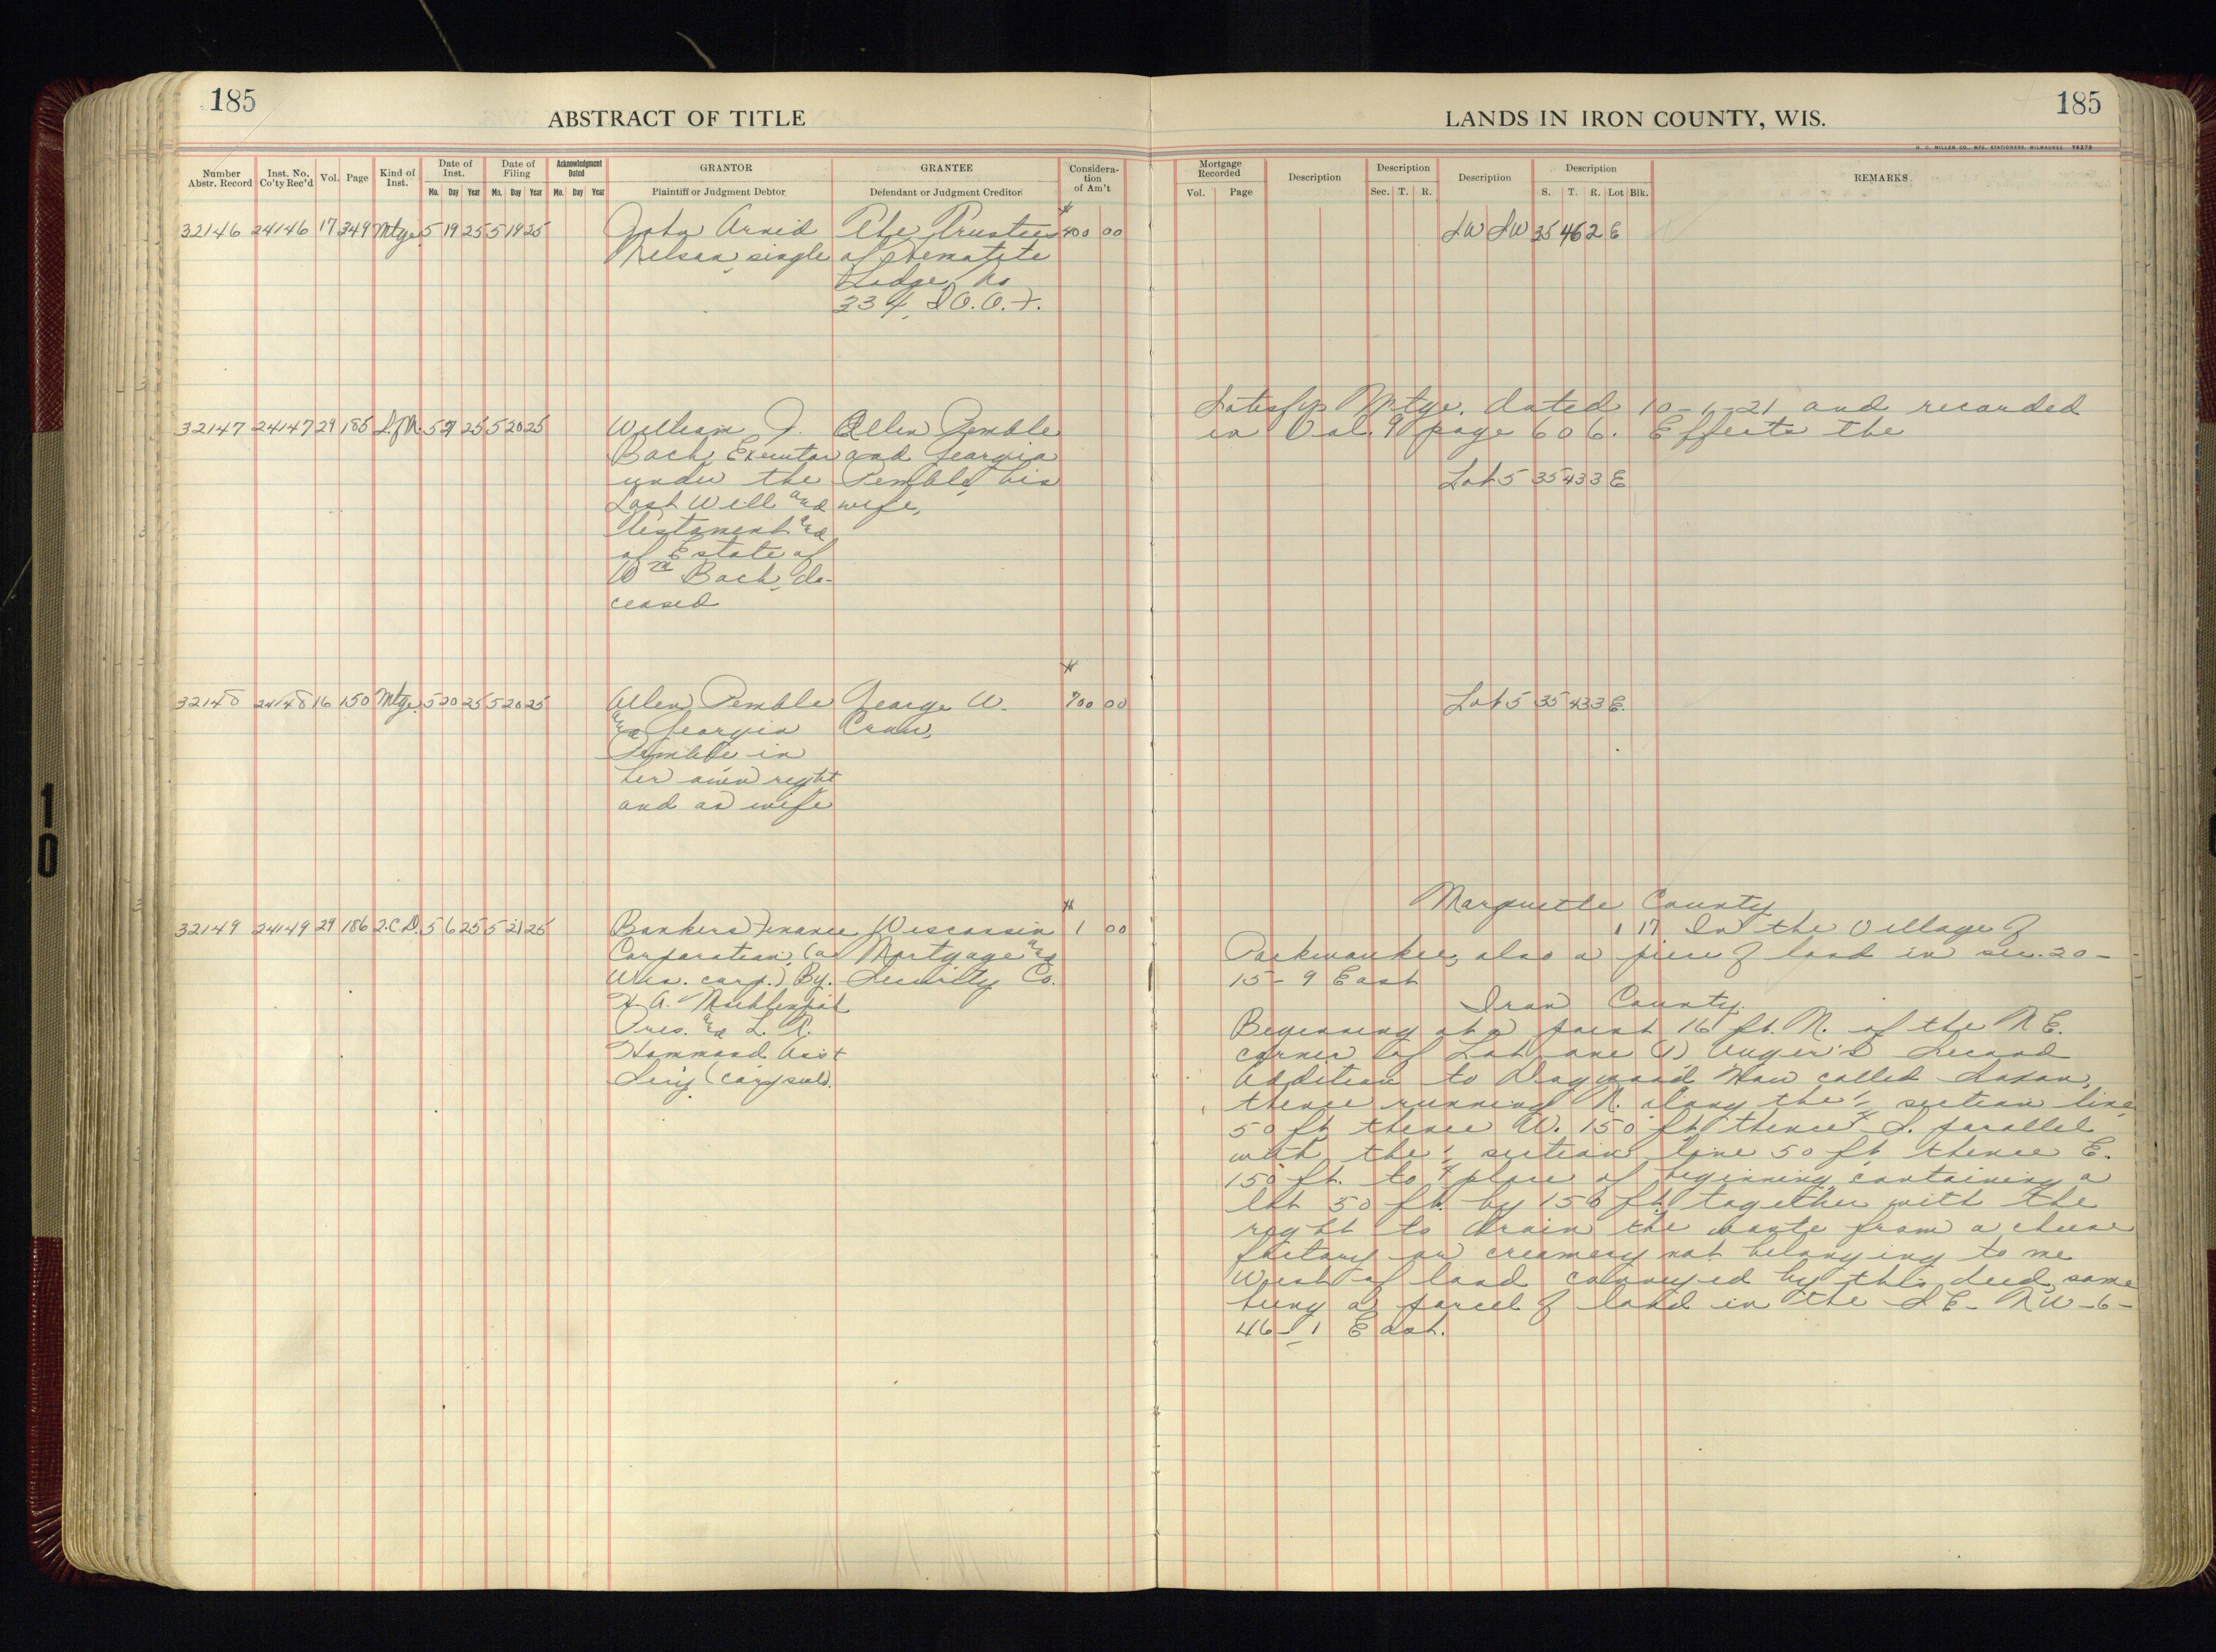 185
ABSTRACT OF TITLE
Number Abstr. Record
Inst. No. Co'ty Rec'd
Vol.
Page
Kind of Inst.
Date of Inst.
Mo. Day Year
Date of Filing
Mo. Day Year
Acknowledgment Dated
Mo. Day Year
GRANTOR
Plaintiff or Judgment Debtor
GRANTEE
Defendant or Judgment Creditor
Considera-
tion
of Am't
32146 24146 17 349 Mtge 5 19 25 5 19 25
John Arvid
Nelson, single
The Trustees
of Hematite
Lodge, No
334, I.O.O.F.
$
400 00
32147 24147 29 185 5 25 5 20 25
William J.
Bach, Executor
under the
Last Will and
Testament and
of Estate of
Wm Bach, de-
ceased
Allen Pemble
and Georgia
Pemble, his
wife,
32148 24148 16 150 Mtge. 5 20 25 5 20 25
Allen Pemble
and Georgia
Pemble in
her own right
and as wife
George W.
$
700 00
32149 24149 29 186 2.C.D. 5 6 25 5 21 25
Bankers Finance
Corporation, (a
Wis. corp.) By.
H. A.
Pres. and L. R.
Hammond Asst
Secy (corp seal).
Wisconsin
Mortgage and
Security Co.
$
1 00
LANDS IN IRON COUNTY, WIS.
185
H. C. MILLER CO., MFG. STATIONERS, MILWAUKEE
Mortgage Recorded
Vol. Page
Description
Description
Sec. T. R.
Description
Description
S. T. R. Lot Blk.
REMARKS
SW SW 35 46 2 E
Satisfys Mtge. dated 10-1-21 and recorded
in Vol. 9 page 606. Effects the
Lot 5 35 43 3 E
Lot 5 35 43 3 E.
Marquette County
1 17 In the Village of
Packwaukee, also a piece of land in sec. 20-
15-9 East
Iron County
Beginning at a point 16 ft. N. of the N E.
corner of Lot one (1) Unger's Second
Addition to Dogwood Now called Saxon,
thence running N. along the 1/4 section line
50 ft. thence W. 150 ft thence S. parallel
with the 1/4 section line 50 ft thence E.
150 ft. to place of beginning, containing a
lot 50 ft. by 150 ft. together with the
right to drain the waste from a cheese
factory or creamery not belonging to me
West of land conveyed by this deed, same
being a parcel of land in the S E- N W-6-
46-1 East.